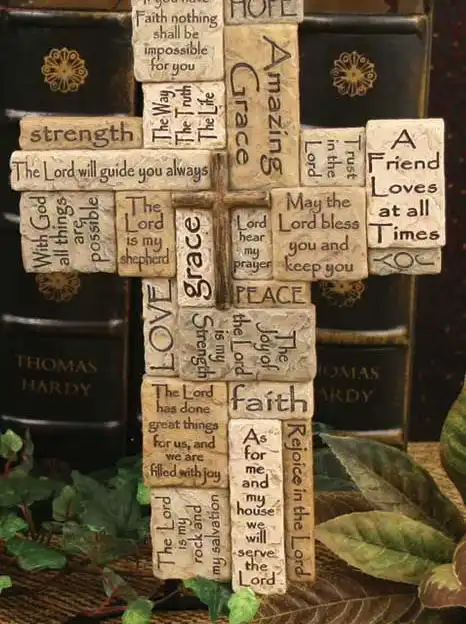 If you have
Faith nothing
shall be
impossible
for you
HOPE
Amazing
Grace
The Way
The Truth
The Life
strength
The Lord will guide you always
Trust
in the
Lord
A
Friend
Loves
at all
Times
With God
all things
are
possible
The
Lord
is my
shepherd
grace
Lord
hear
my
prayer
May the
Lord bless
you and
keep you
JOY
PEACE
LOVE
The Joy of
the Lord
is my
Strength
The Lord
has done
great things
for us, and
we are
filled with joy
faith
As
for me
and
my
house
we
will
serve
the
Lord
Rejoice in the Lord
The Lord
is my
rock and
my salvation
THOMAS
HARDY
THOMAS
HARDY